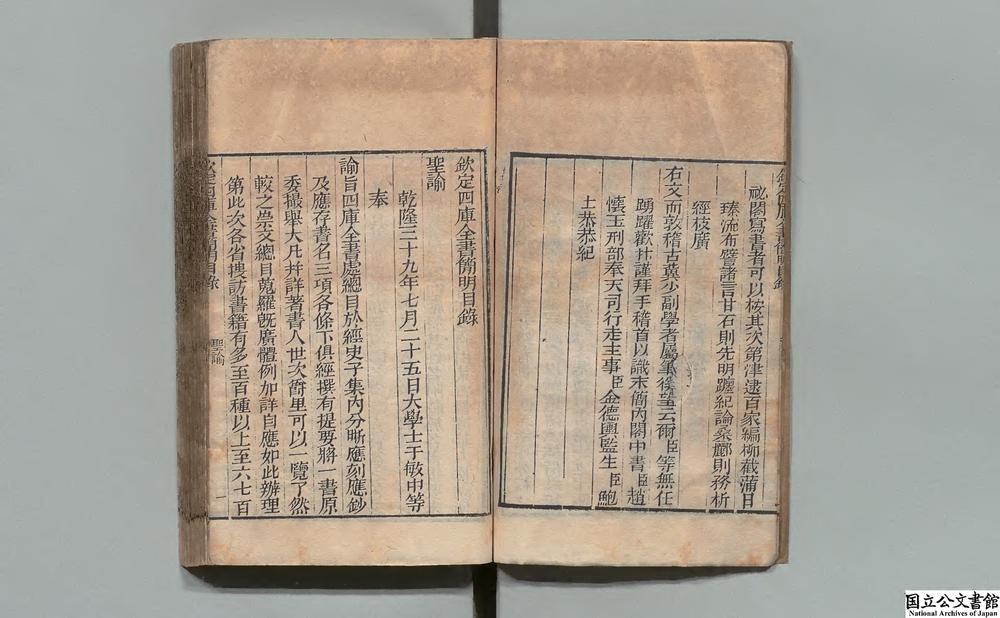 祕閣寫書者可以按其次第津逮百家編柳截蒲日
臻流布譬諸言甘石則先明躔紀論桑酈則務析
經枝廣
右文而敦稽古冀少副學者屬氣後望云爾臣等無任
踴躍歡抃謹拜手稽首以識末簡內閣中書臣趙
懷玉刑部奉天司行走主事臣金德輿監生臣鮑
士恭恭紀
欽定四庫全書簡明目錄
聖諭
乾隆三十九年七月二十五日大學士于敏中等
奉
諭旨四庫全書處總目於經史子集內分晰應刻應鈔
及應存書名三項各條下俱經撰有提要將一書原
委撮舉大凡并詳著書人世次爵里可以一覽了然
較之崇文總目蒐羅旣廣體例加詳自應如此辦理
第此次各省搜訪書籍有多至百種以上至六七百
欽定四庫全書簡明目錄
聖諭
一
国立公文書館
National Archives of Japan